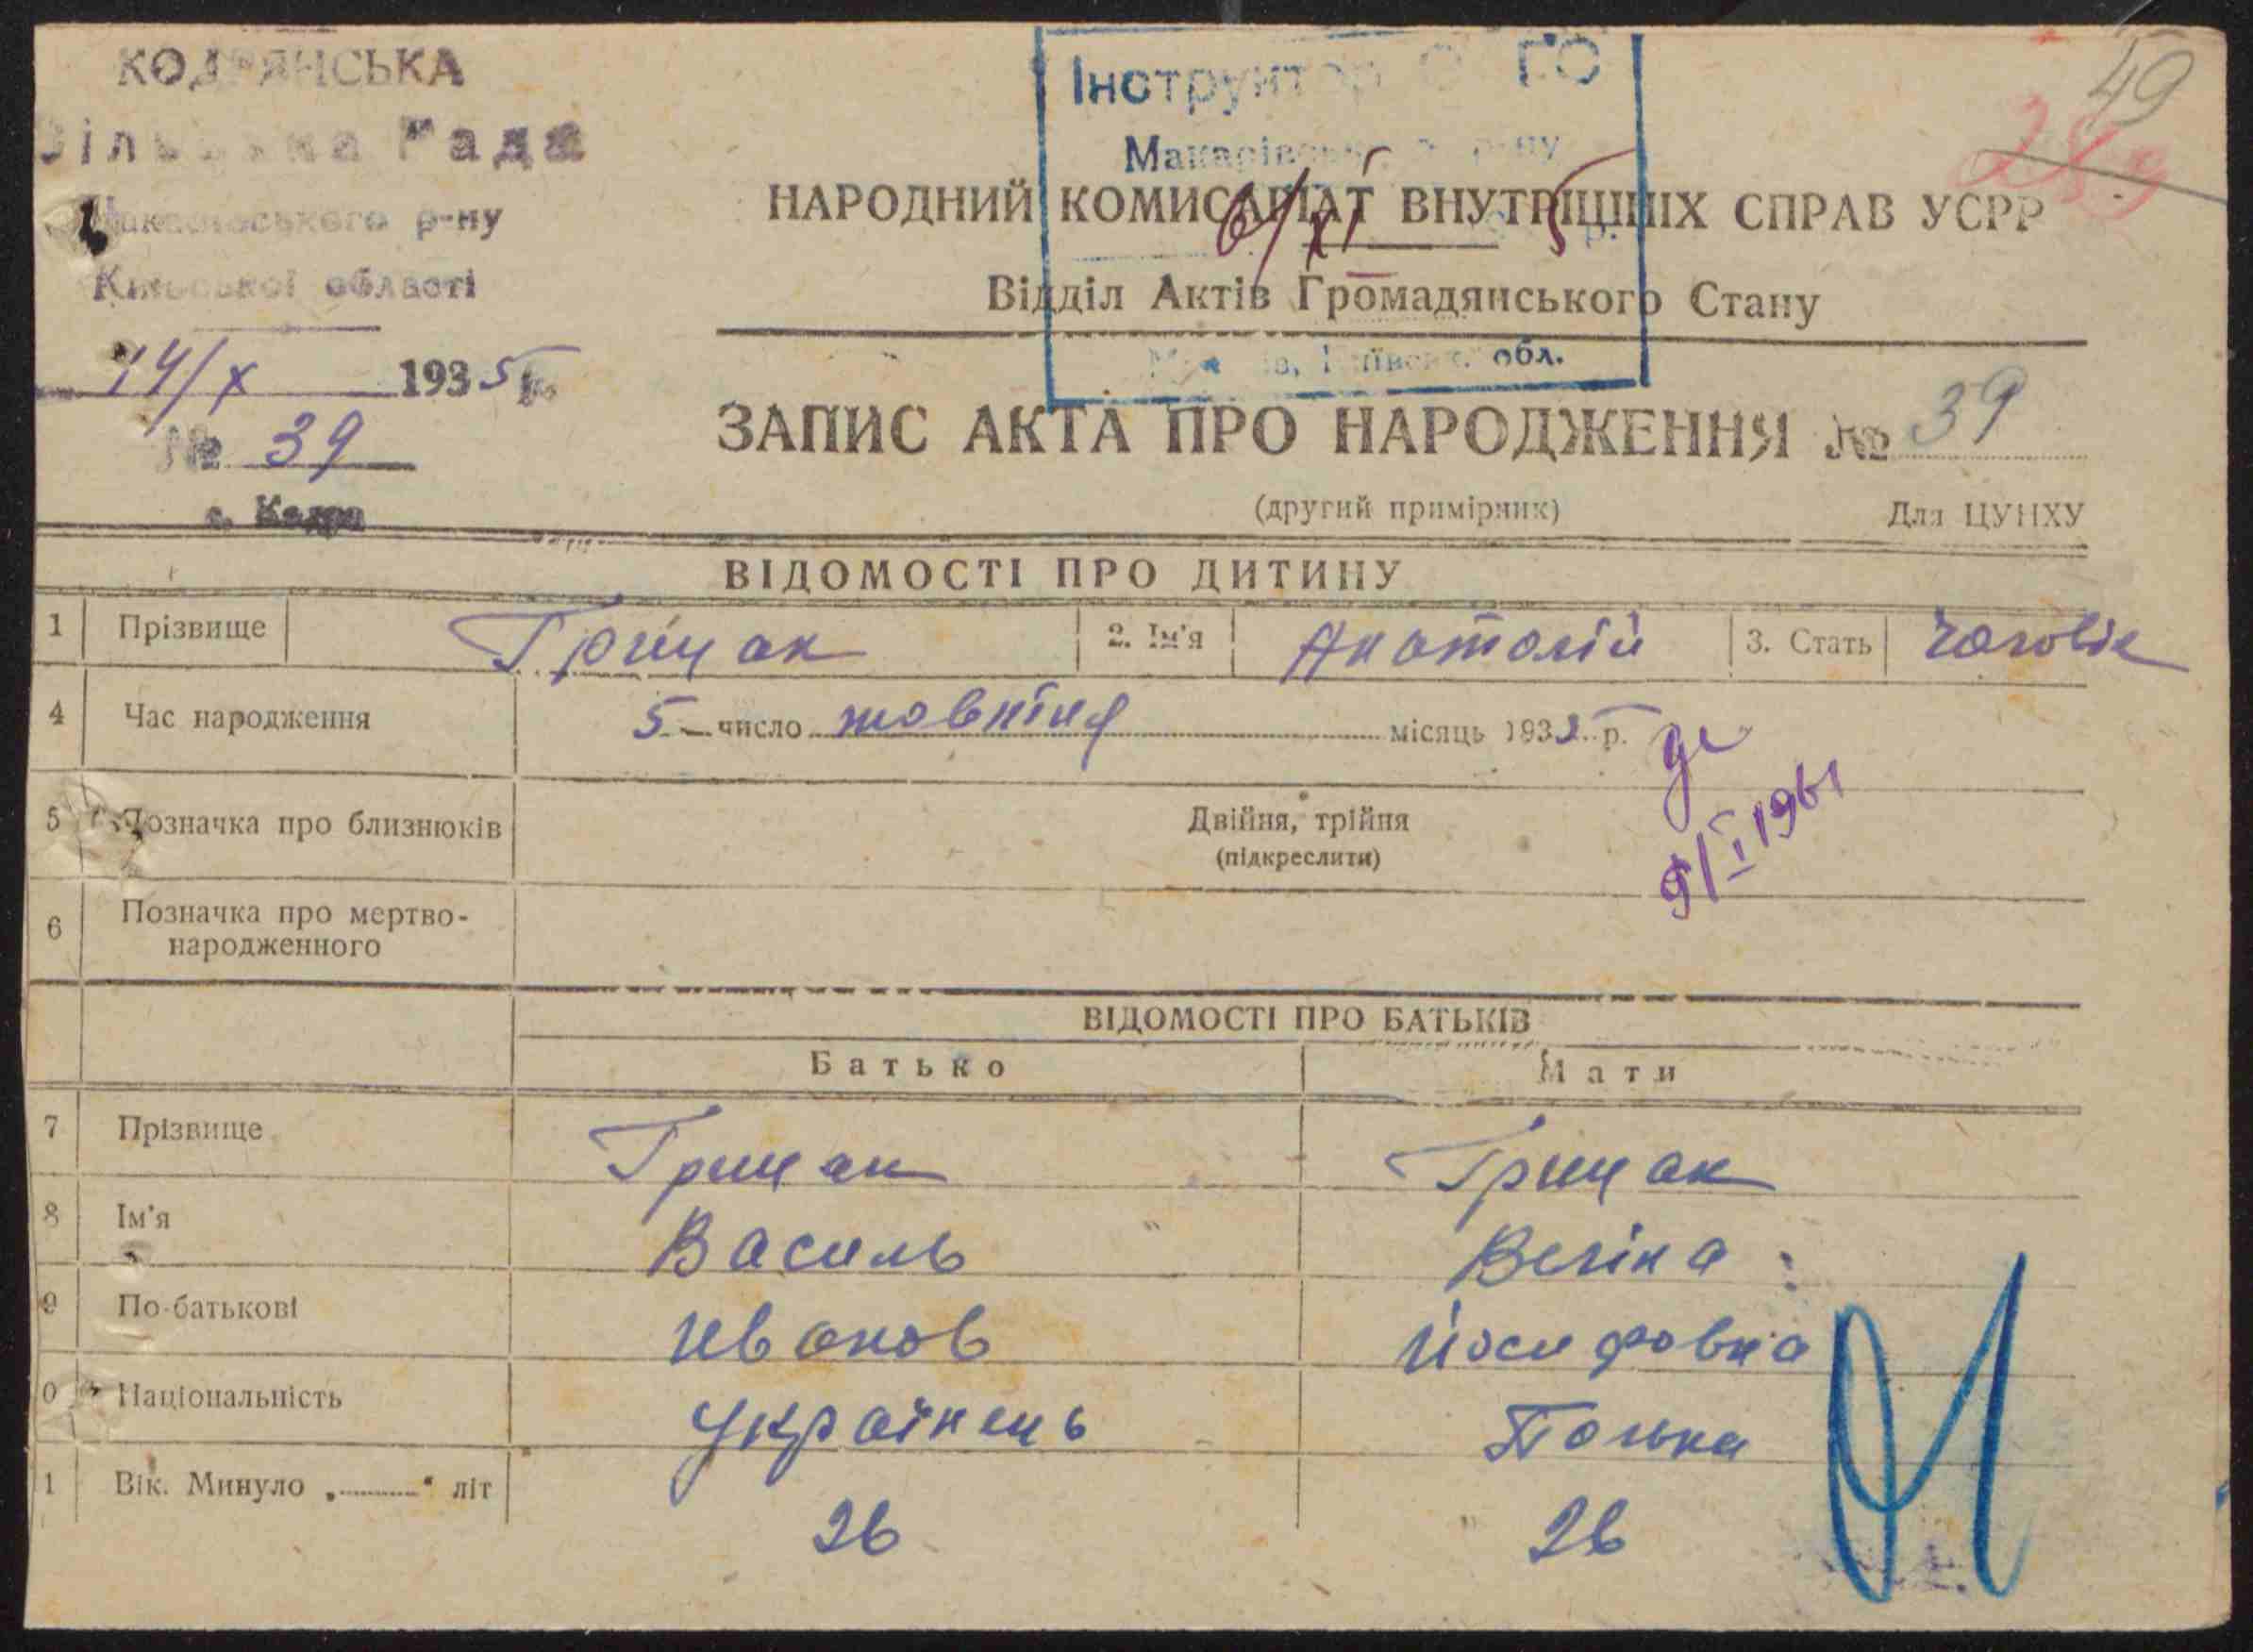 КОДРЯНСЬКА
Сільська Рада
Макарівського р-ну
Київської області
14/X 1935 р.
№ 39
с. Кодра
Інструктор ГС
Макарівського р-ну
6/XI 5 р.
обл.
49
НАРОДНИЙ КОМИСАРІАТ ВНУТРІШНІХ СПРАВ УСРР
Відділ Актів Громадянського Стану
ЗАПИС АКТА ПРО НАРОДЖЕННЯ № 39
(другий примірник) Для ЦУНХУ
ВІДОМОСТІ ПРО ДИТИНУ
1 Прізвище Грицак 2. Ім'я Анатолій 3. Стать чоловік
4 Час народження 5 число жовтня місяць 1935 р.
9/I 1961
5 Позначка про близнюків Двійня, трійня
(підкреслити)
6 Позначка про мертво-
народженного
ВІДОМОСТІ ПРО БАТЬКІВ
Батько Мати
7 Прізвище Грицак Грицак
8 Ім'я Василь Веліна
9 По-батькові Иванов Йосифовна
0 Національність Українець Полька
1 Вік. Минуло „ “ літ 26 26